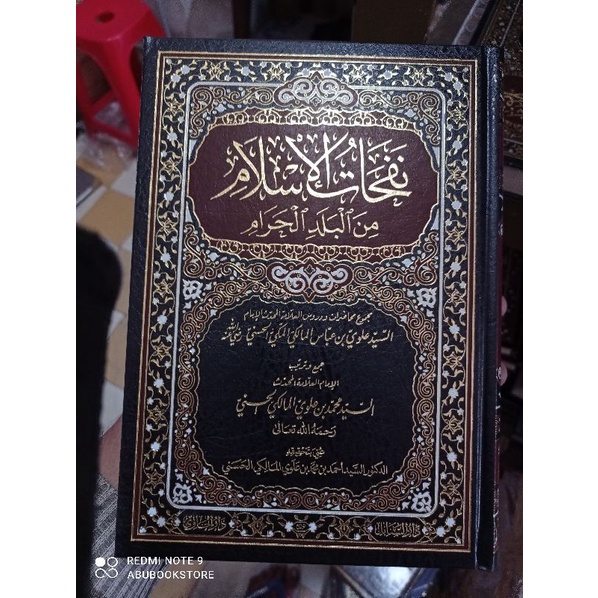 نفحات الإسلام
من البلد الحرام
مجموع محاضرات ودروس العلامة المحدث الإمام
السيد علوي بن عباس المالكي المكي الحسني رضي الله عنه
جمع وترتيب
الإمام العلامة المحدث
السيد محمد بن علوي المالكي الحسني
رحمه الله تعالى
عني بتحقيقه
الدكتور السيد أحمد بن محمد بن علوي المالكي الحسني
REDMI NOTE 9
ABUBOOKSTORE